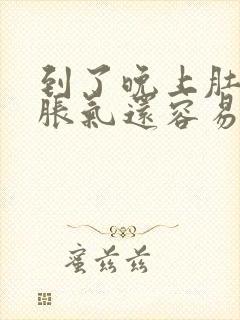 到了晚上肚
脹氣還容易
蜜兹兹